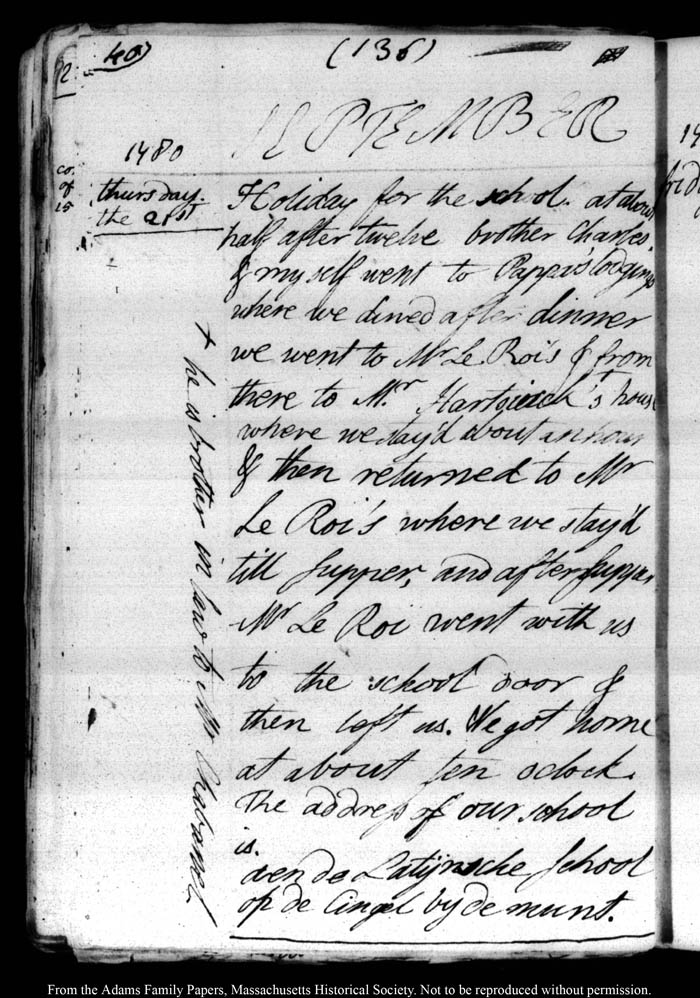 12
40)
(136)
SEPTEMBER
1480
co.
of
15
thursday.
the 21st
Holiday for the school. at about
half after twelve brother Charles.
& myself went to Pappa's lodgings
where we dined after dinner
we went to Mr Le Roi's & from
there to Mr. house
where we stay'd about an hour
& then returned to Mr
Le Roi's where we stay'd
till supper, and after supper
Mr Le Roi went with us
to the school door &
then left us. We got home
at about ten oclock.
The address of our school
is.
den de Latijnsche School
op de Cingel by de munt.
+ he is brother in law to Mr Chabanel
14
frid
From the Adams Family Papers, Massachusetts Historical Society. Not to be reproduced without permission.